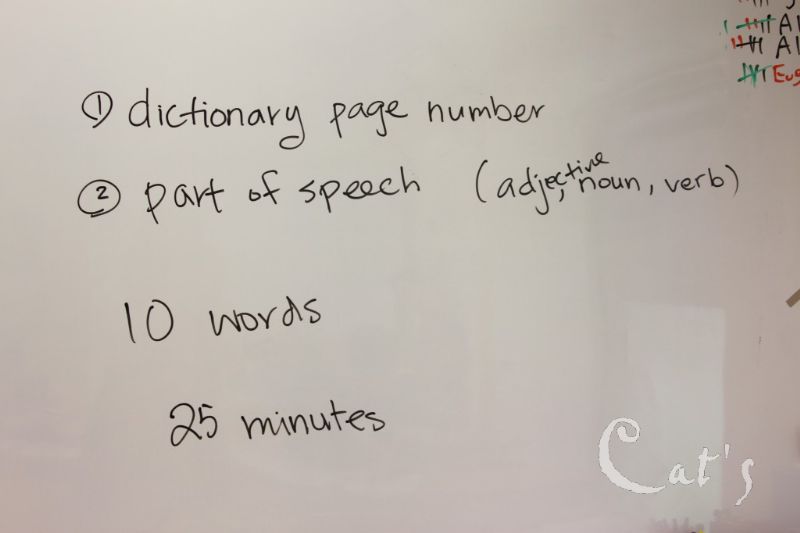 ① dictionary page number
② part of speech (adjective, noun, verb)
10 words
25 minutes
Cat's